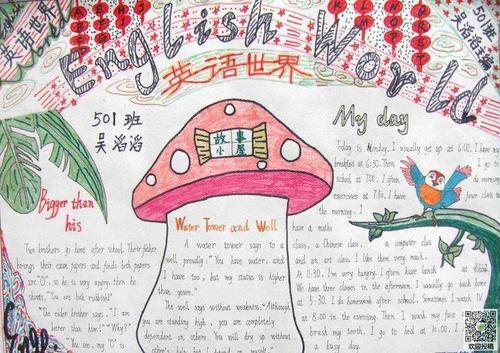 English World
英语世界
英语世界
501班
吴滔滔
501班
吴滔滔
故事
小屋
Bigger than
his
Two brothers go home after school. Their father
brings their exam papers and finds both papers
are "0", so he is very angry, then he
shouts, "You are both rubbish!"
The elder brother says, "I am
better than him!" "Why?"
"You see, my "0" is
Water Tower and Well
A water tower says to a
well proudly, "You have water, and
I have too, but my status is higher
than yours."
The well says without weakness, "Although
you are standing high, you are completely
dependent on others. You will dry up without
My day
Today is Monday. I usually get up at 6:00. I have my
breakfast at 6:30. Then I go to
school at 7:00. I often
exercises at 7:30. I have four class
the morning. I
have a maths
class, a Chinese class, a computer class
and an art class. I like them very much.
At 11:30, I'm very hungry. I often have lunch at
We have three classes in the afternoon. I usually go back home
at 5:30. I do homework after school. Sometimes I watch TV
at 8:00 in the evening. Then I wash my face and
brush my teeth. I go to bed at 10:00. I
a busy day.
欢迎投稿